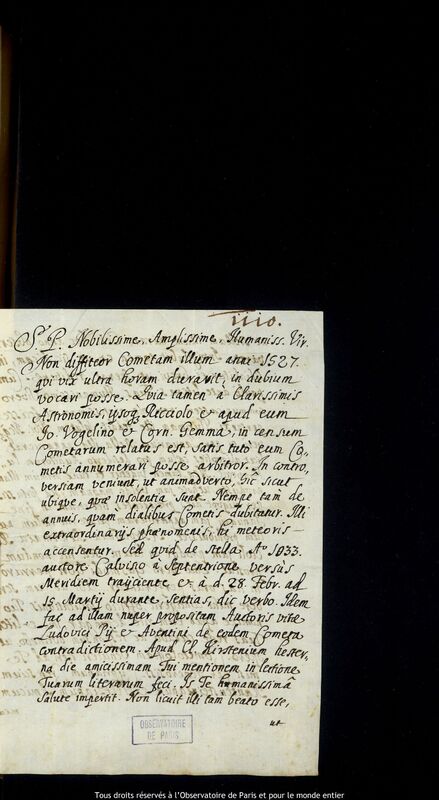 1110.
S. P. Nobilissime, Amplissime, Humaniss. Vir.
Non diffiteor Cometam illum anni 1527.
qui vix ultra horam duravit, in dubium
vocari posse. Quia tamen a Clarissimis
Astronomis, ipsoq; Ricciolo & apud eum
Jo. Vogelino & Corn. Gemma, in censum
Cometarum relatus est, satis tuto eum Co-
metis annumerari posse arbitror. In contro-
versiam veniunt, ut animadverto, hîc sicut
ubique, quæ insolentia sunt. Nempe tam de
annuis, quam dialibus Cometis dubitatur. Illi
extraordinarijs phænomenis, hi meteoris
accensentur. Sed quid de stella Aº 1033.
auctore Calvisio à Septentrione versùs
Meridiem trajiciente & à d. 28. Febr. ad
15. Martij durante, sentias, dic verbo. Idem
fac ad illam nuper propositam Auctoris vitæ
Ludovici Pij & Aventini de eodem Cometa
contradictionem. Apud Cl. Kirstenium hester-
na die amicissimam Tui mentionem in lectione
Tuarum literarum feci. Is Te humanissimâ
salute impertit. Non licuit illi tam beato esse,
ut
OBSERVATOIRE
DE PARIS
Tous droits réservés à l'Observatoire de Paris et pour le monde entier